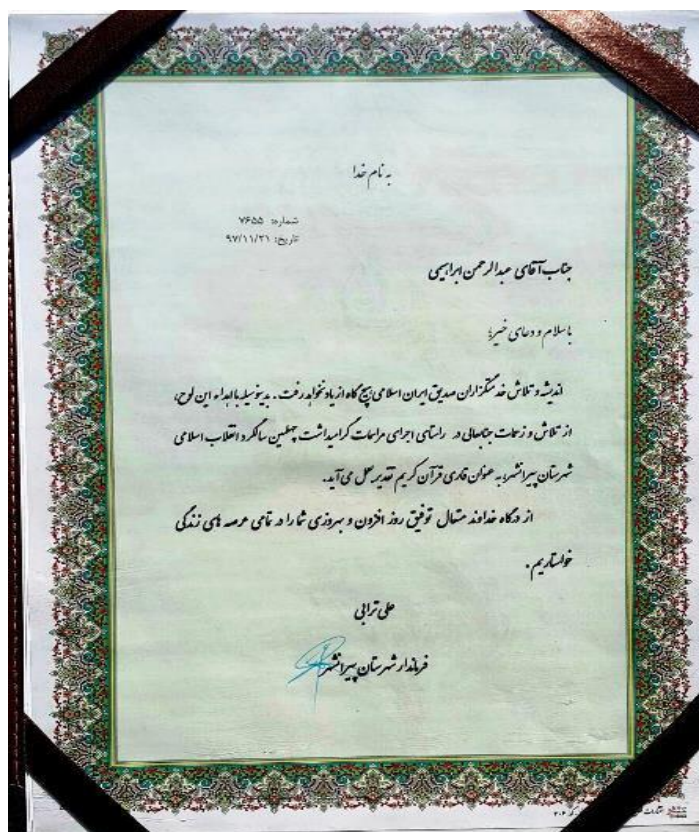 به نام خدا
شماره: ۷۶۵۵
تاریخ: ۹۷/۱۱/۲۱
جناب آقای عبدالرحمن ابراهیمی
با سلام و دعای خیر؛
اندیشه و تلاش خدمتگزاران صدیق ایران اسلامی هیچ گاه از یاد نخواهد رفت. بدینوسیله با اهداء این لوح،
از تلاش و زحمات جنابعالی در راستای اجرای مراسمات گرامیداشت چهلمین سالگرد انقلاب اسلامی
شهرستان پیرانشهر، به عنوان قاری قرآن کریم تقدیر بعمل می آید.
از درگاه خداوند متعال توفیق روز افزون و بهروزی شما را در تمامی عرصه های زندگی
خواستاریم.
علی ترابی
فرماندار شهرستان پیرانشهر